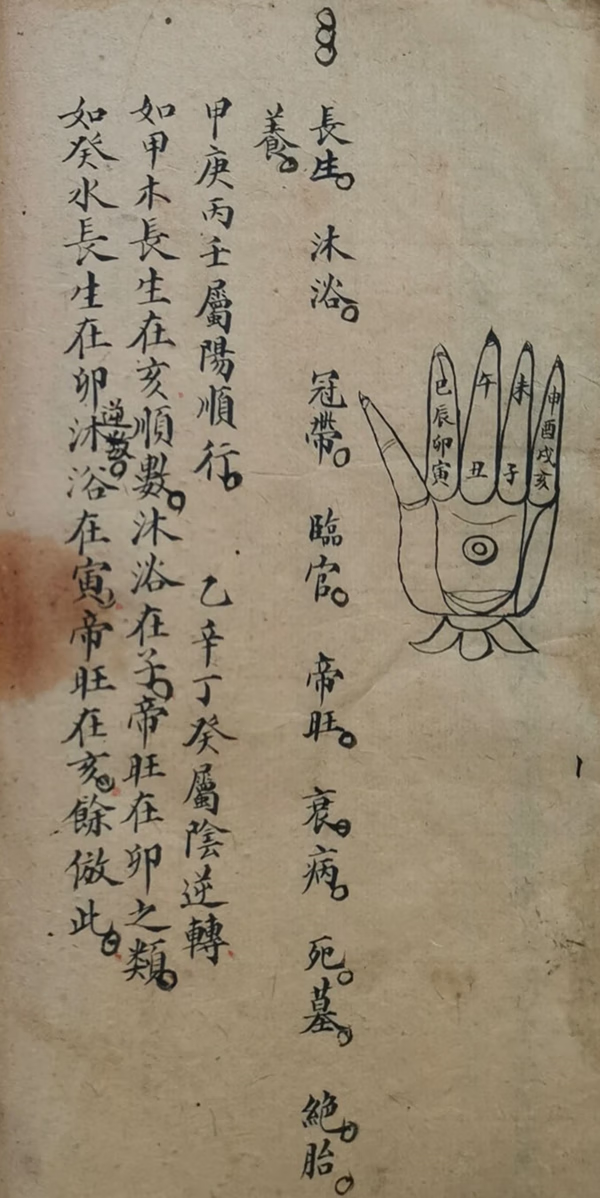 巳 午 未 申
辰 酉
卯 戌
寅 丑 子 亥
長生。沐浴。冠帶。臨官。帝旺。衰。病。死。墓。絶。胎。
養。
甲庚丙壬屬陽順行。乙辛丁癸屬陰逆轉
如甲木長生在亥順數。沐浴在子。帝旺在卯之類。
如癸水長生在卯逆數。沐浴在寅。帝旺在亥。餘倣此。